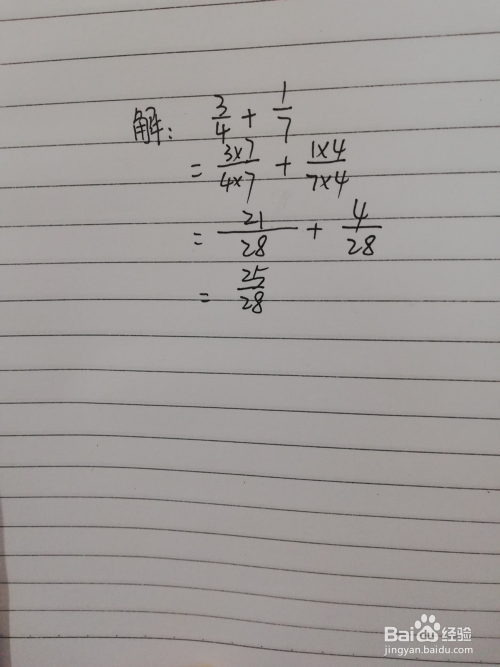 解: 3/4 + 1/7
= 3×7/4×7 + 1×4/7×4
= 21/28 + 4/28
= 25/28
Bai du 经验
jingyan.baidu.com